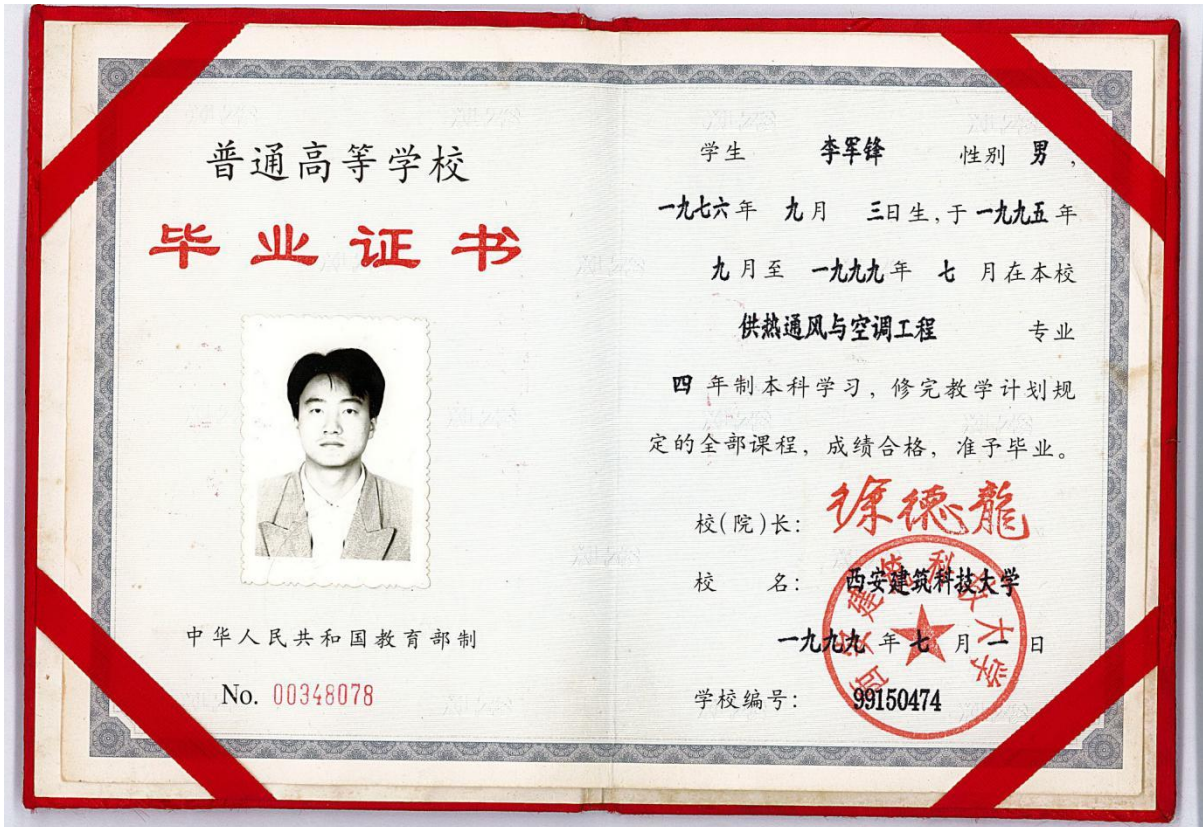 普通高等学校
毕业证书
中华人民共和国教育部制
No. 00348078
学生 李军锋 性别 男,
一九七六年 九月 三日生,于一九九五年
九月至 一九九九年 七 月在本校
供热通风与空调工程 专业
四 年制本科学习，修完教学计划规
定的全部课程，成绩合格，准予毕业。
校(院)长: 徐德龍
校 名: 西安建筑科技大学
一九九九 年 七 月 一 日
学校编号: 99150474
西安建筑科技大学